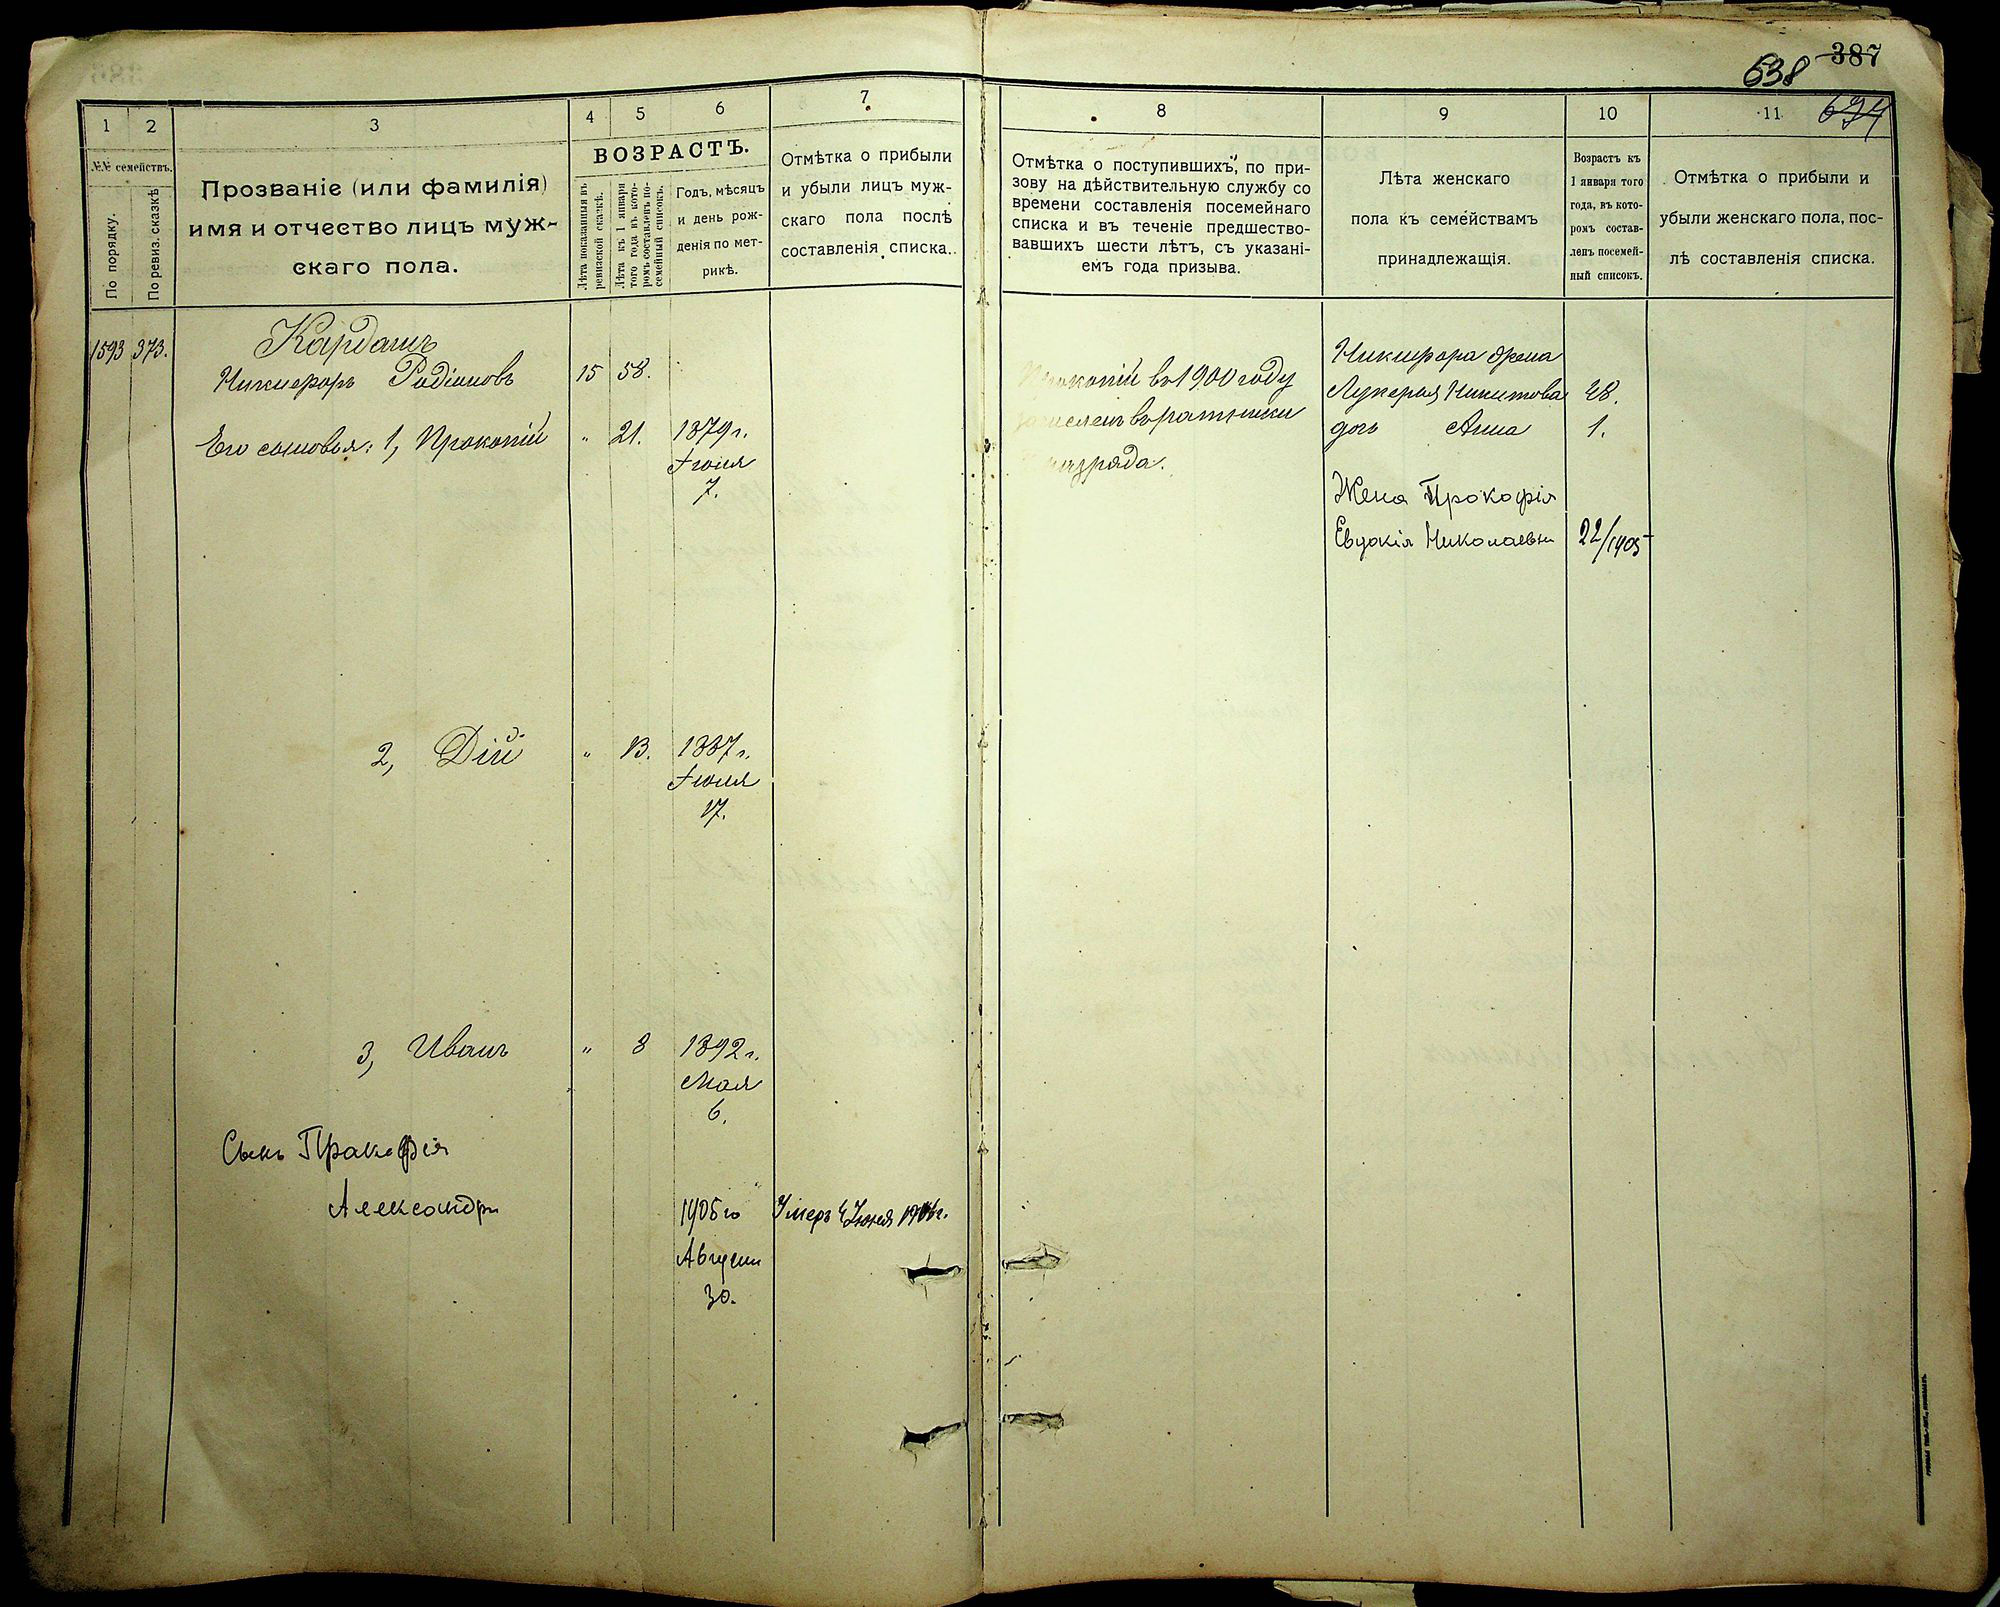 387
638
634
1
2
3
4
5
6
7
8
9
10
11
№№ семействъ.
По порядку.
По ревиз. сказкѣ
Прозваніе (или фамилія)
имя и отчество лицъ муж-
скаго пола.
ВОЗРАСТЪ.
Лѣта показанныя въ
ревизской сказкѣ.
Лѣта къ 1 января
того года въ кото-
ромъ составленъ по-
семейный списокъ.
Годъ, мѣсяцъ
и день рож-
денія по мет-
рикѣ.
Отмѣтка о прибыли
и убыли лицъ муж-
скаго пола послѣ
составленія списка.
Отмѣтка о поступившихъ, по при-
зову на дѣйствительную службу со
времени составленія посемейнаго
списка и въ теченіе предшество-
вавшихъ шести лѣтъ, съ указані-
емъ года призыва.
Лѣта женскаго
пола къ семействамъ
принадлежащія.
Возрастъ къ
1 января того
года, въ кото-
ромъ состав-
ленъ посемей-
ный списокъ.
Отмѣтка о прибыли и
убыли женскаго пола, пос-
лѣ составленія списка.
1593 373.
Кардашъ
Никифоръ Родіоновъ 15 58.
Его сыновья: 1, Прокопій " 21. 1879 г.
Іюля
7.
2, Дій " 13. 1887 г.
Іюля
17.
3, Иванъ " 8 1892 г.
Мая
6.
Сынъ Пракофія
Александръ
1905го
Августа
30.
Умеръ 4 Іюня 1906г.
Прокопій въ 1900 году
зачисленъ въ ратники
разряда.
Никифора жена
Лукерья Никитова 48.
дочь Анна 1.
Жена Прокофія
Евдокія Николаевна 22/1905